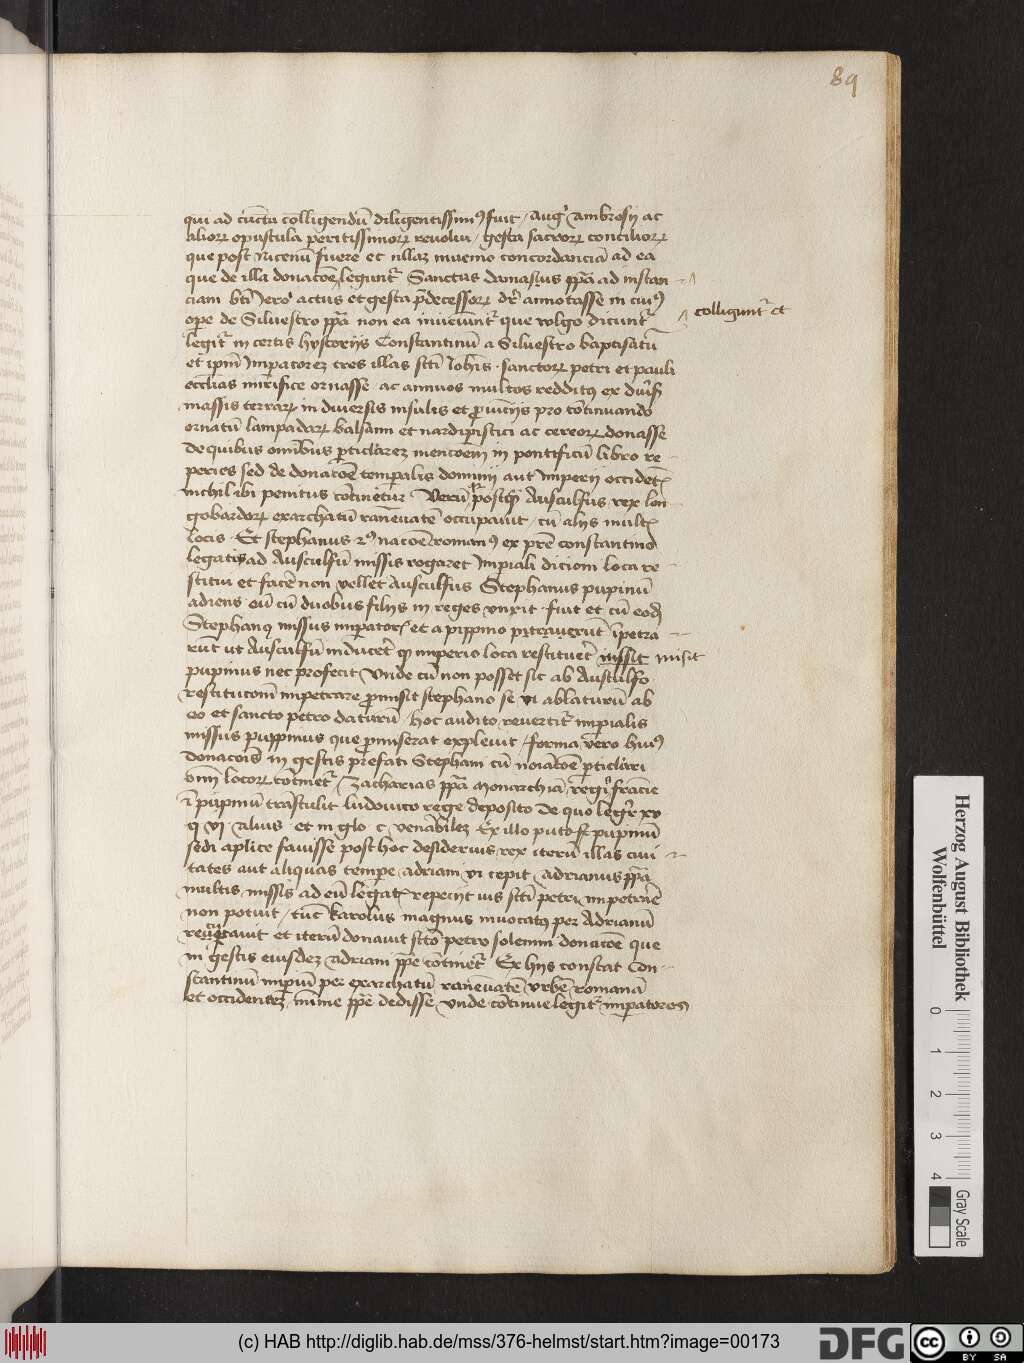 89
qui ad cūcta colligendū diligentissimꝰ fuit / augꝰ ambrosij ac
alioꝝ opuscula peritissimoꝝ reuolui / gesta sacroꝝ concilioꝝ
que post Nicenū fuere et nllaꝫ inuenio concordanciā ad ea
que de illa donacoē legunt᷑ Sanctus damasus ppā ad instan
ciam bti Jeroi actus et gesta p̄decessoꝝ dr̄ annotasse in cuiꝰ
colligunt᷑ et
ope de Siluestro ppā non ea inueiunt᷑ que vulgo dicunt᷑
legit᷑ in certis hystorijs Constantinū a Siluestro baptisatū
et ipm̄ Imperatoreꝫ tres illas scti Joh̄is · sanctoꝝ petri et pauli
eccl̄ias mirifice ornasse · ac annuos multos redditꝰ ex diu̾sis
massis terraꝝ in diuersis insulis et ꝓuincijs pro cōtinuando
ornatū lampadaꝝ balsami et nardipistici ac cereoꝝ donasse
De quibus omībus ꝑticlareꝫ mencoem in pontificū libro re
peries sed de donacoē temporalis dominij aut Imperij occidetꝭ
nichil ibi penitus cōtinetur Verū postꝗ Ausculfus rex lon
gobardoꝝ exarchatū rauēnatē occupauit · cū alijs multꝭ
locis · Et stephanus 2ꝰ nacoē romanꝰ ex pr̄e constantino
legatis ad Ausculfū missis rogaret Imperiali dicioni loca re
stitui et facē non vellet Ausculfus Stephanus pupinū
adiens · eū cū duobus filijs in reges vnxit · fuit et cū eodē
Stephano missus imperatorꝭ et a pippino īpetra
rūt ut Ausculfū induceret qꝫ imperio loca restitueret missit misit
pupinus nec profecit Vnde cū non posset sic ab Austulfo
restitucom̄ impetrare promisit stephano se vi ablaturū ab
eo et sancto petro daturū / hoc audito reuertit᷑ imperialis
missus puppinus que promiserat expleuit / forma vero huiꝰ
donacois in gestis prefati Stephani cū noīatoē ꝑticlari
om̄i locoꝝ cōtinet᷑ / Zacharias ppā Monarchiā regni francie
ī pipinū trāstulit ludouico rege deposito De quo legit᷑ xv
q vi · alius · et in glo · c · venābileꝫ Ex illo puto pupinū
sedi aplice fauisse post hoc desiderius rex iterū illas ciui
tates aut aliquas tempe adriani vi cepit adrianus ppā
multis missis ad eū legatꝭ repeciit ius scti petri impetrāe
non potuit / tūc karolus magnus inuocatꝰ per Adrianū
recuperauit et iterū donauit scto petro solemni donacoē que
in gestis eiusdeꝫ adriani ppe cōtinet᷑ Ex hijs constat Con
stantinū imperiū per exarchatū rauēnatē vrbē romanā
et occidenteꝫ / minime ppē dedisse vnde cōtinue legit᷑ imperatores
Herzog August Bibliothek
Wolfenbüttel
0 1 2 3 4
Gray Scale
(c) HAB http://diglib.hab.de/mss/376-helmst/start.htm?image=00173
DFG
cc BY SA